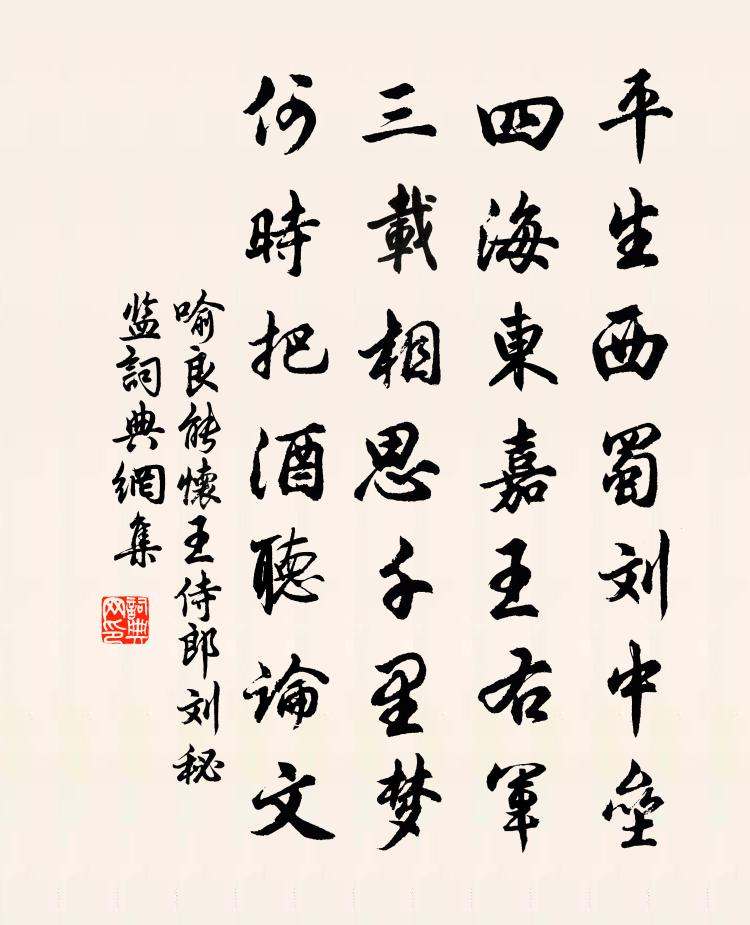 平生西蜀刘中壘
四海東嘉王右軍
三載相思千里梦
何時把酒聽論文
喻良能懷王侍郎刘秘
监詞典網集
詞典网印